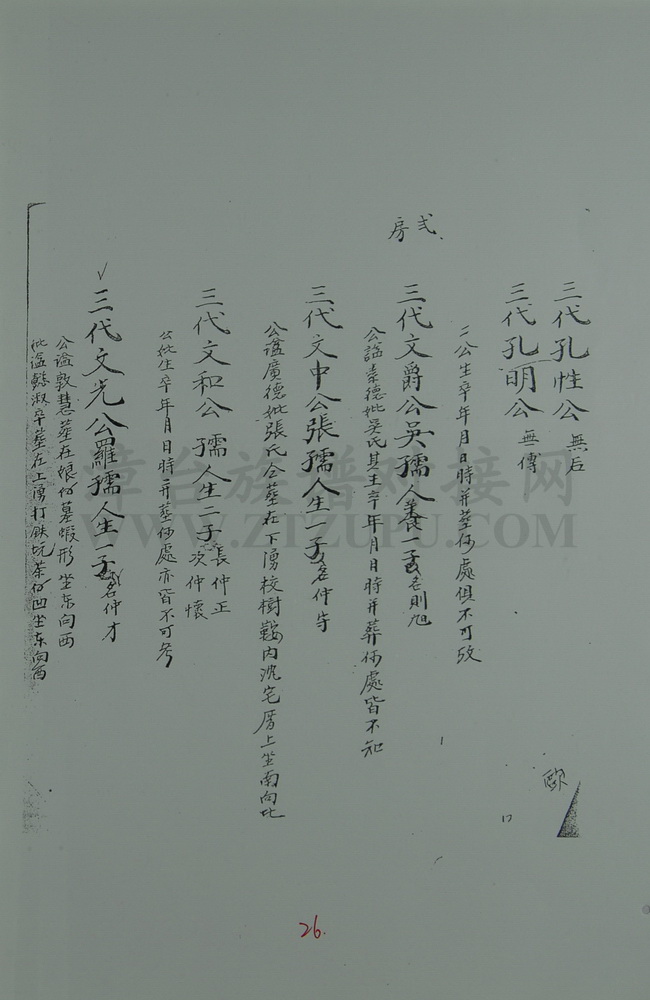 三代孔性公 無后
三代孔明公 無傳
二公生卒年月日時并葬何處俱不可攷
弍房
三代文爵公吳孺人養一子名則旭
公諡崇德妣吳氏其生卒年月日時并葬何處皆不知
三代文中公張孺人生一子名仲寺
公諡廣德妣張氏合葬在下湧校樹鞍內沈宅厝上坐南向北
三代文和公 孺人生二子長仲正次仲懷
公妣生卒年月日時并葬何處亦皆不可考
三代文光公羅孺人生一子名仲才
公諡敦慧葬在娘仔墓蝦形坐东向西
妣諡懿淑卒葬在上湧打鉄坑茶仔凹坐东向西
歐
26.
章台族谱对接网
WWW.ZTZUPU.COM